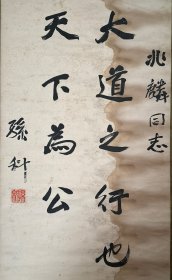 兆麟同志
大道之行也
天下為公
孫科